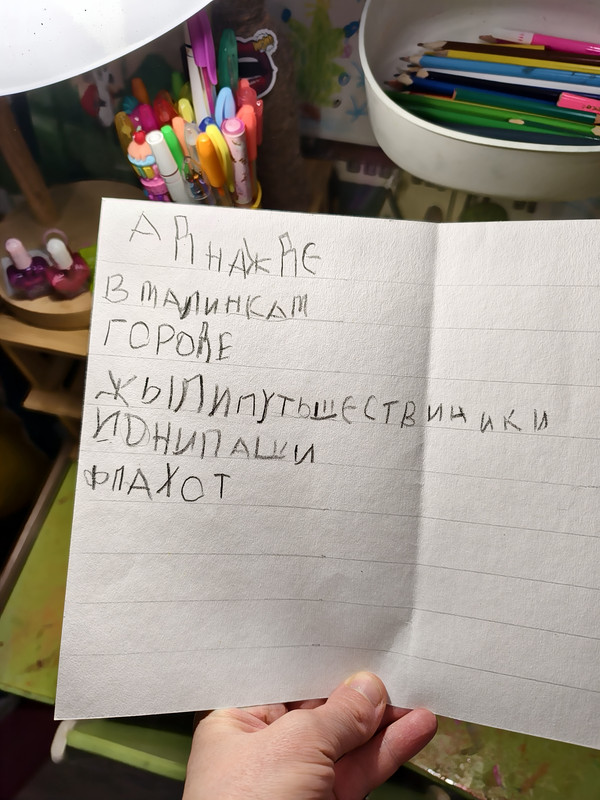 АДНАЖДЕ
В МАЛИНКАМ
ГОРОДЕ
ЖЫЛИПУТЬШЕСТВИНИКИ
ИОНИПАШИ
ФПАХОТ